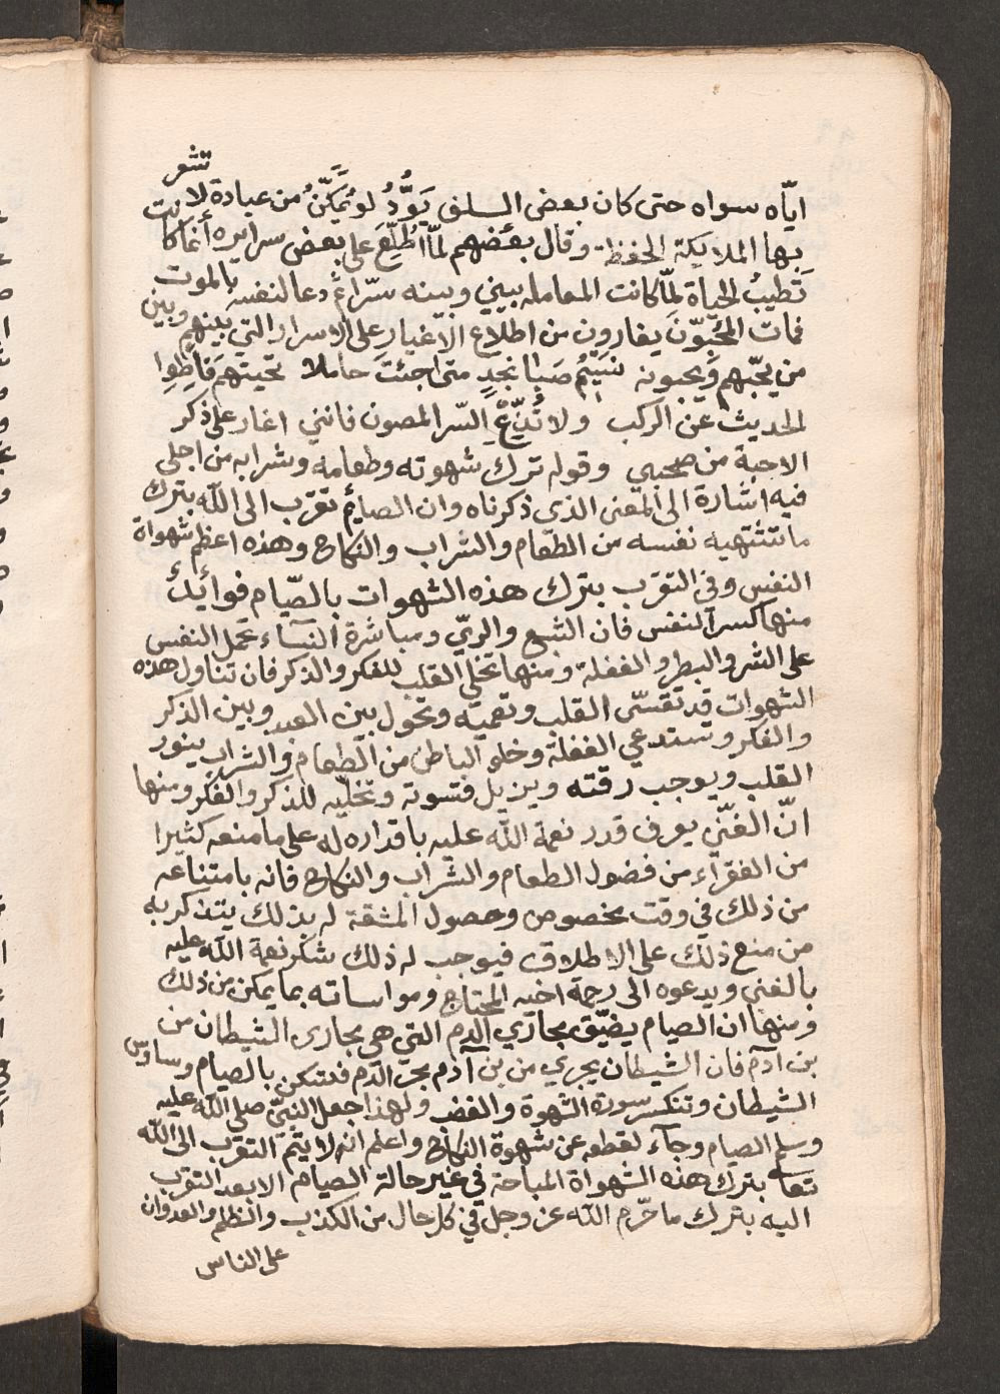 ايّاه سواه حتى كان بعض السلف يَوَدُّ لو تمكَّنُ من عبادة لا تشعر
بها الملايكة الحفظة وقال بعضهم لمّا اُطُّلِعَ على بعض سرايره أنما كانت
تَطيبُ الحياة لمّا كانت المعامله بيني وبينه سرّا ثم دعا لنفسه بالموت
فمات المحُبّوّنَ يغارون من اطلاع الاغيار على الاسرار التي بينهم وبين
من يحّبهم ويحبونه نسيم صَبا نجدٍ متى جئتَ حاملا تحيتهم فاطوِا
الحديث عن الركب ولا تُذِعْ السّر المصون فانني اغار على ذكر
الاحبة من صحبي وقوله ترك شهوته وطعامه وشرابه من اجلي
فيه اشارة الى المعنى الذى ذكرناه وان الصايم تقرّب الى الله بترك
ما تشتهيه نفسه من الطعام والشراب والنكاح وهذه اعظم شهواة
النفس وفى التقرّب بترك هذه الشهوات بالصّيام فوائدُ
منها كسر النفس فان الشبع والريّ ومباشرة النسآء تحمل النفس
على الشر والبطر والغفلة ومنها تخلي القلب للفكر والذكر فان تناول هذه
الشهوات قد تقسّى القلب وتعميه وتحول بين العبد وبين الذكر
والفكر وتستدعي الغفلة وخلو الباطن من الطعام والشراب ينور
القلب ويوجب رقته ويزيل قسوته وتخلّيه للذكر والفكر ومنها
انّ الغنّي يعرف قدر نعمة الله عليه باقداره له على ما منعه كثيرا
من الفقراء من فضول الطعام والشراب والنكاح فانه بامتناعه
من ذلك في وقت مخصوص وحصول المشقة له بذلك يتذكر به
من منع ذلك على الاطلاق فيوجب له ذلك شكر نعمة الله عليه
بالغنى ويدعوه الى رحمة اخيه المحتاج ومواساته بما يمكن من ذلك
ومنها ان الصيام يضيّق مجاري الدم التي هي مجارى الشيطان من
بن آدم فان الشيطان يجري من بن آدم مجرى الدّم فتسكن بالصيام وساوس
الشيطان وتنكسر سورة الشهوة والغضب ولهذا جعل النبيّ صلى الله عليه
وسلم الصيام وجآء لقطعه عن شهوة النكاح واعلم انه لا يتّم التقرّب الى الله
تعا بترك هذه الشهواة المباحة في غير حالة الصيام الا بعد التقرب
اليه بترك ما حرّم الله عز وجل في كل حال من الكذب والظلم والعدوان
على الناس